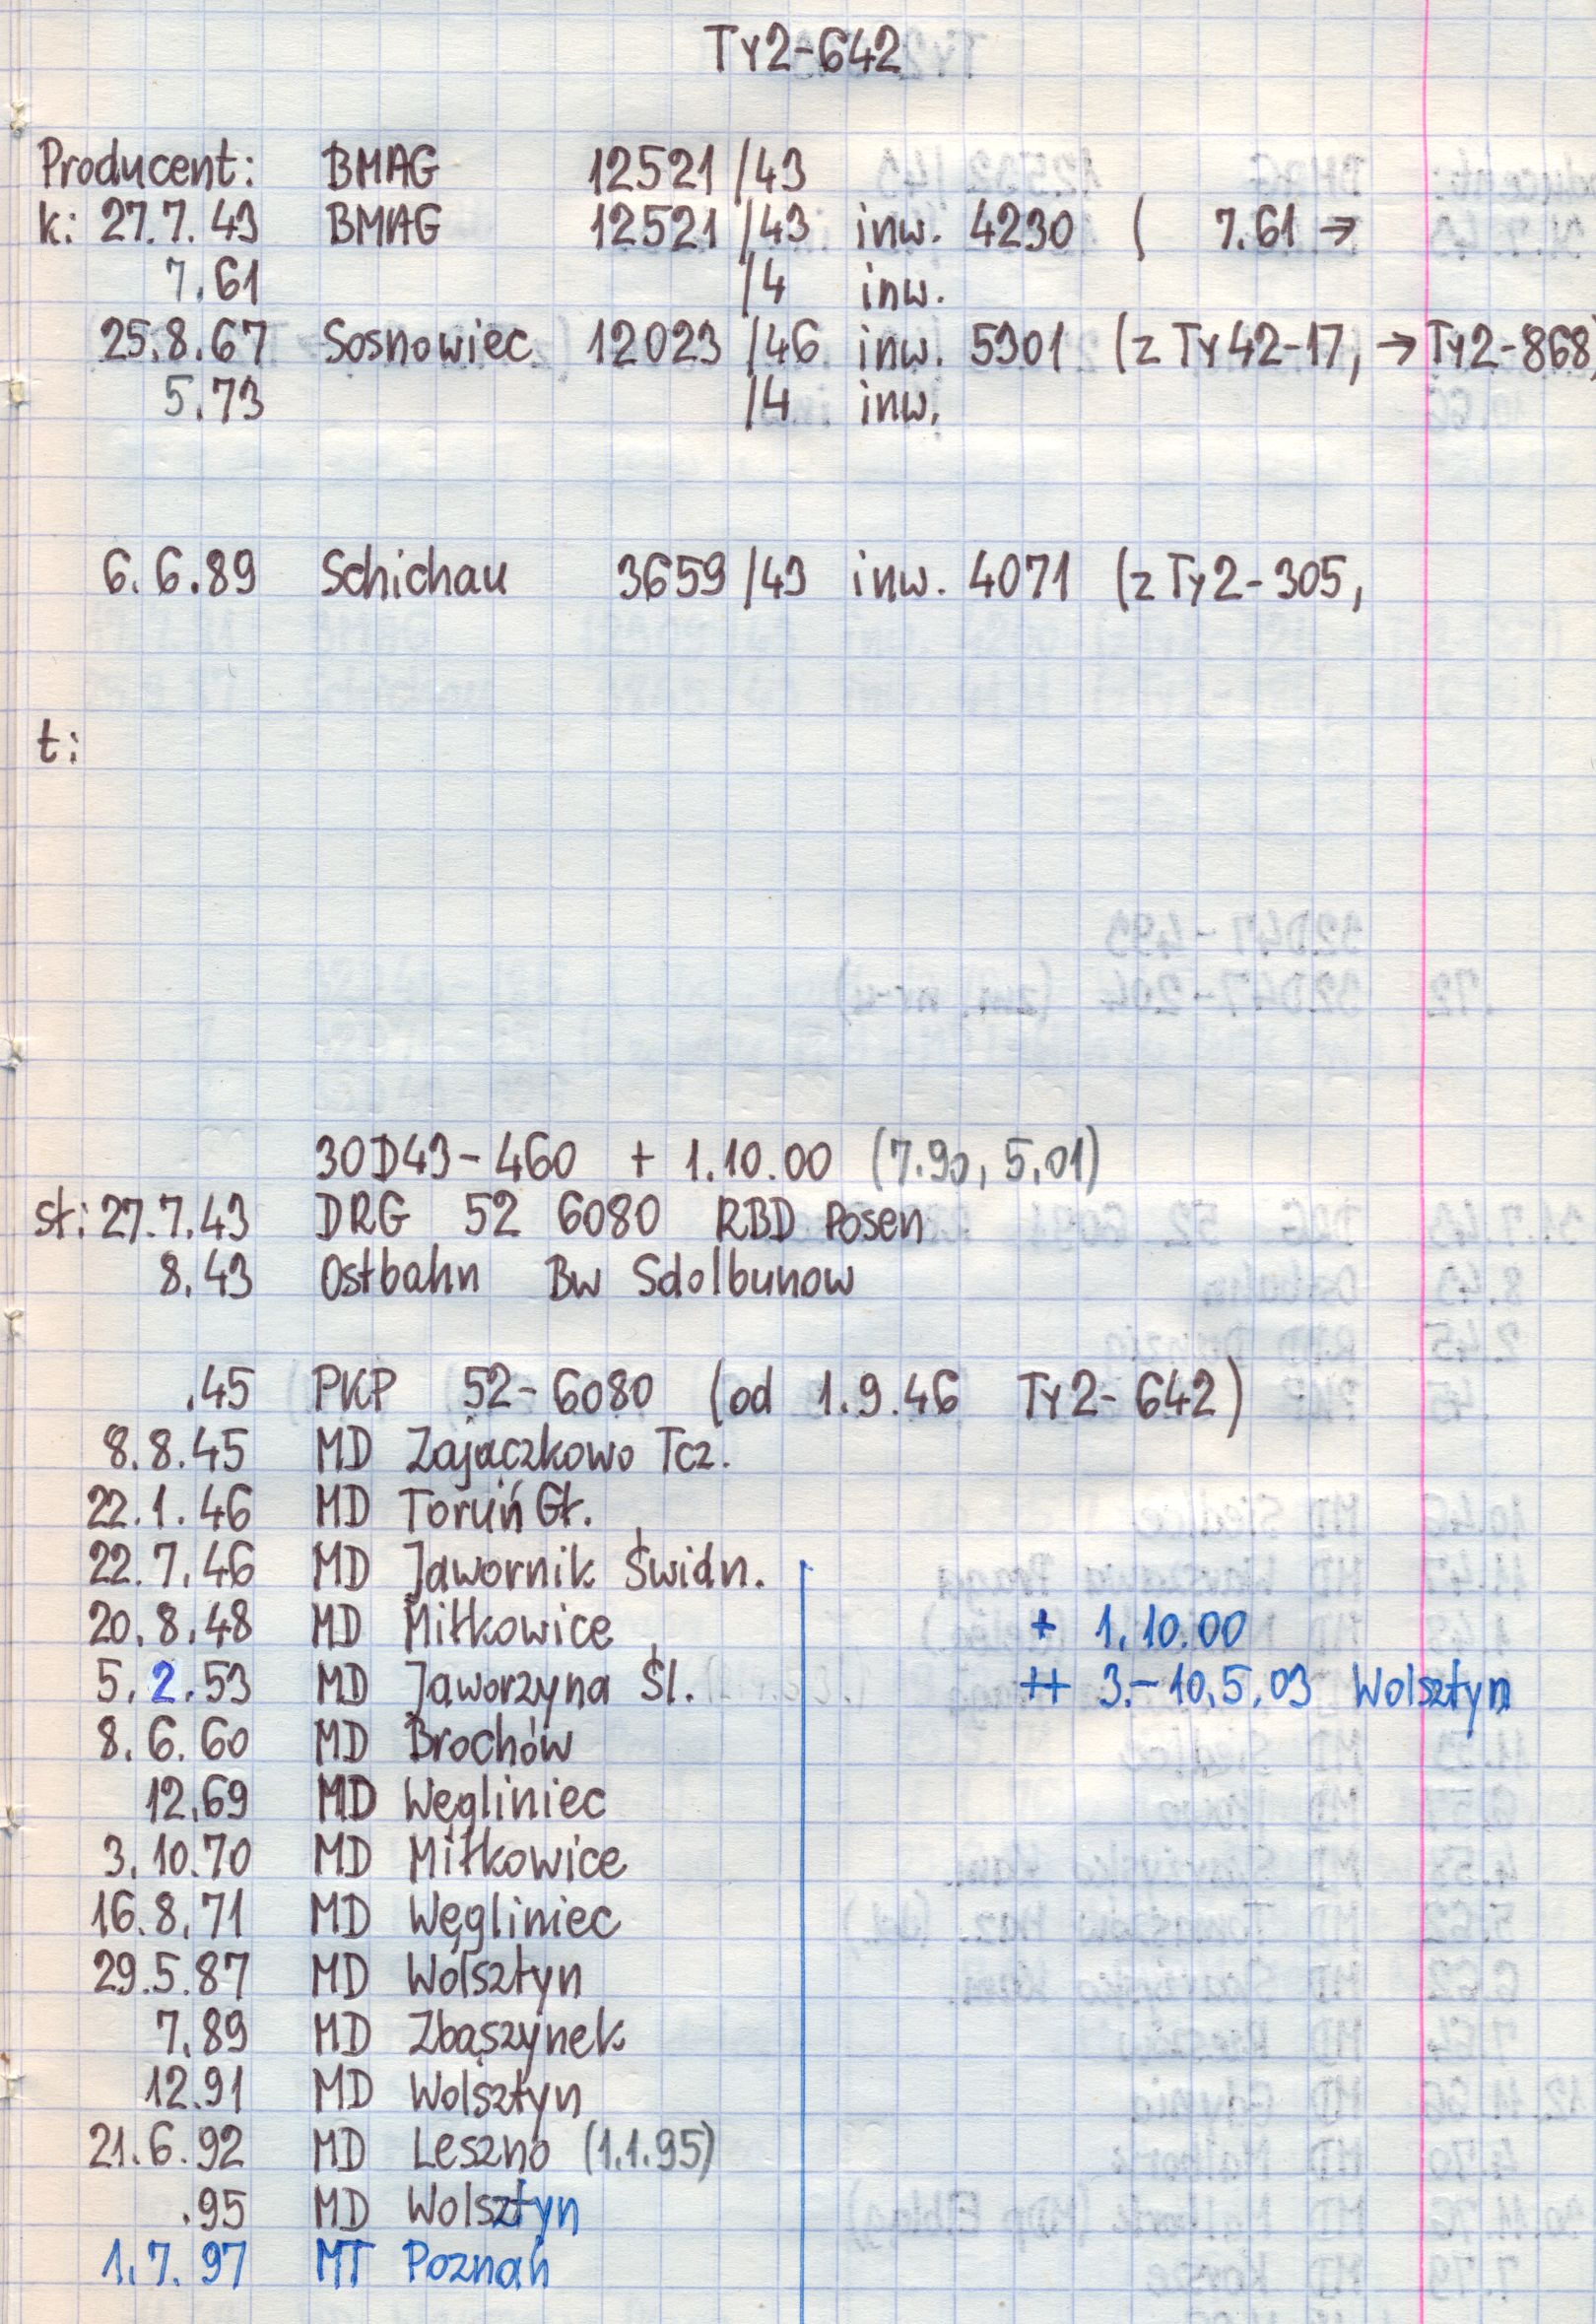 Ty2-642
Producent: BMAG 12521/43
k: 27.7.43 BMAG 12521/43 inw. 4230 ( 7.61 →
7.61 /4 inw.
25.8.67 Sosnowiec 12023/46 inw. 5301 (z Ty42-17, → Ty2-868)
5.73 /4 inw.
6.6.89 Schichau 3659/43 inw. 4071 (z Ty2-305,
t:
30D43-460 + 1.10.00 (7.90, 5.01)
st: 27.7.43 DRG 52 6080 RBD Posen
8.43 Ostbahn Bw Sdolbunow
.45 PKP 52-6080 (od 1.9.46 Ty2-642)
8.8.45 MD Zajączkowo Tcz.
22.1.46 MD Toruń Gł.
22.7.46 MD Jawornik Świdn.
20.8.48 MD Miłkowice + 1.10.00
5.2.53 MD Jaworzyna Śl. ++ 3.-10.5.03 Wolsztyn
8.6.60 MD Brochów
12.69 MD Węgliniec
3.10.70 MD Miłkowice
16.8.71 MD Węgliniec
29.5.87 MD Wolsztyn
7.89 MD Zbąszynek
12.91 MD Wolsztyn
21.6.92 MD Leszno (1.1.95)
.95 MD Wolsztyn
1.7.97 MT Poznań